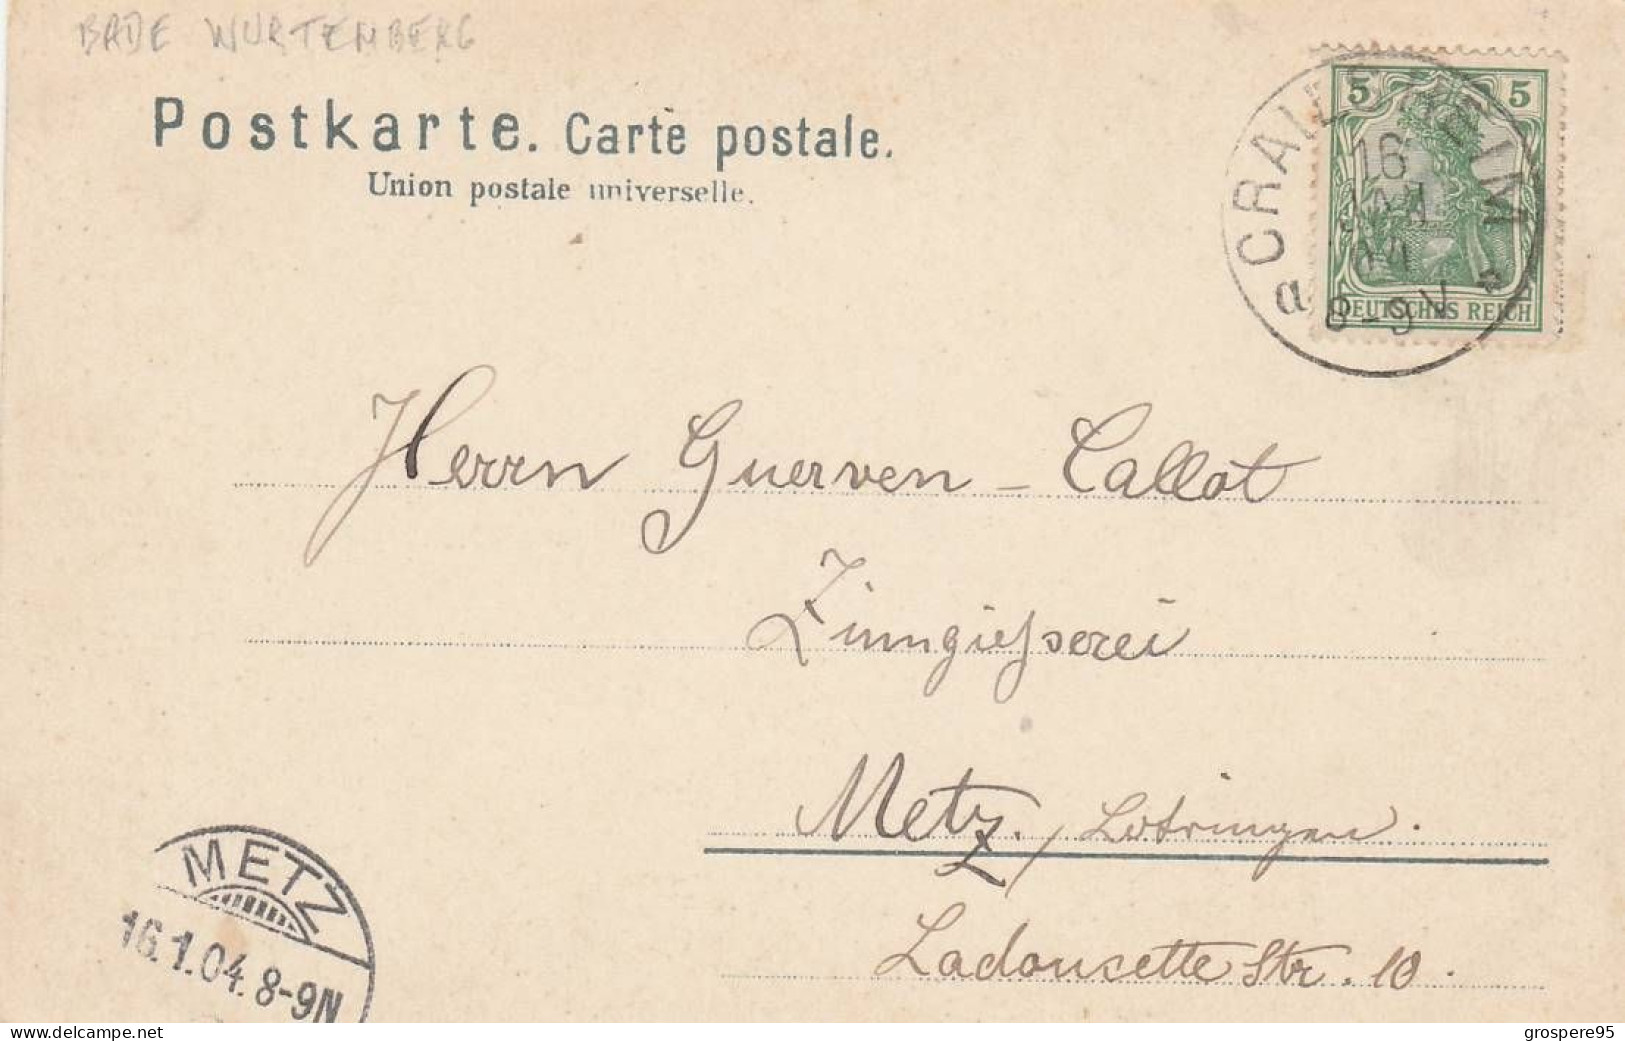 BADE WURTEMBERG
Postkarte. Carte postale.
Union postale universelle.
5 5
CRAILSHEIM
16
JAN
04
8-9V
a
DEUTSCHES REICH
Herrn Guerven - Callot
Zinngießerei
Metz. / Lotringen.
Ladoucette Str. 10.
METZ
16.1.04. 8-9N
www.delcampe.net
grospere95